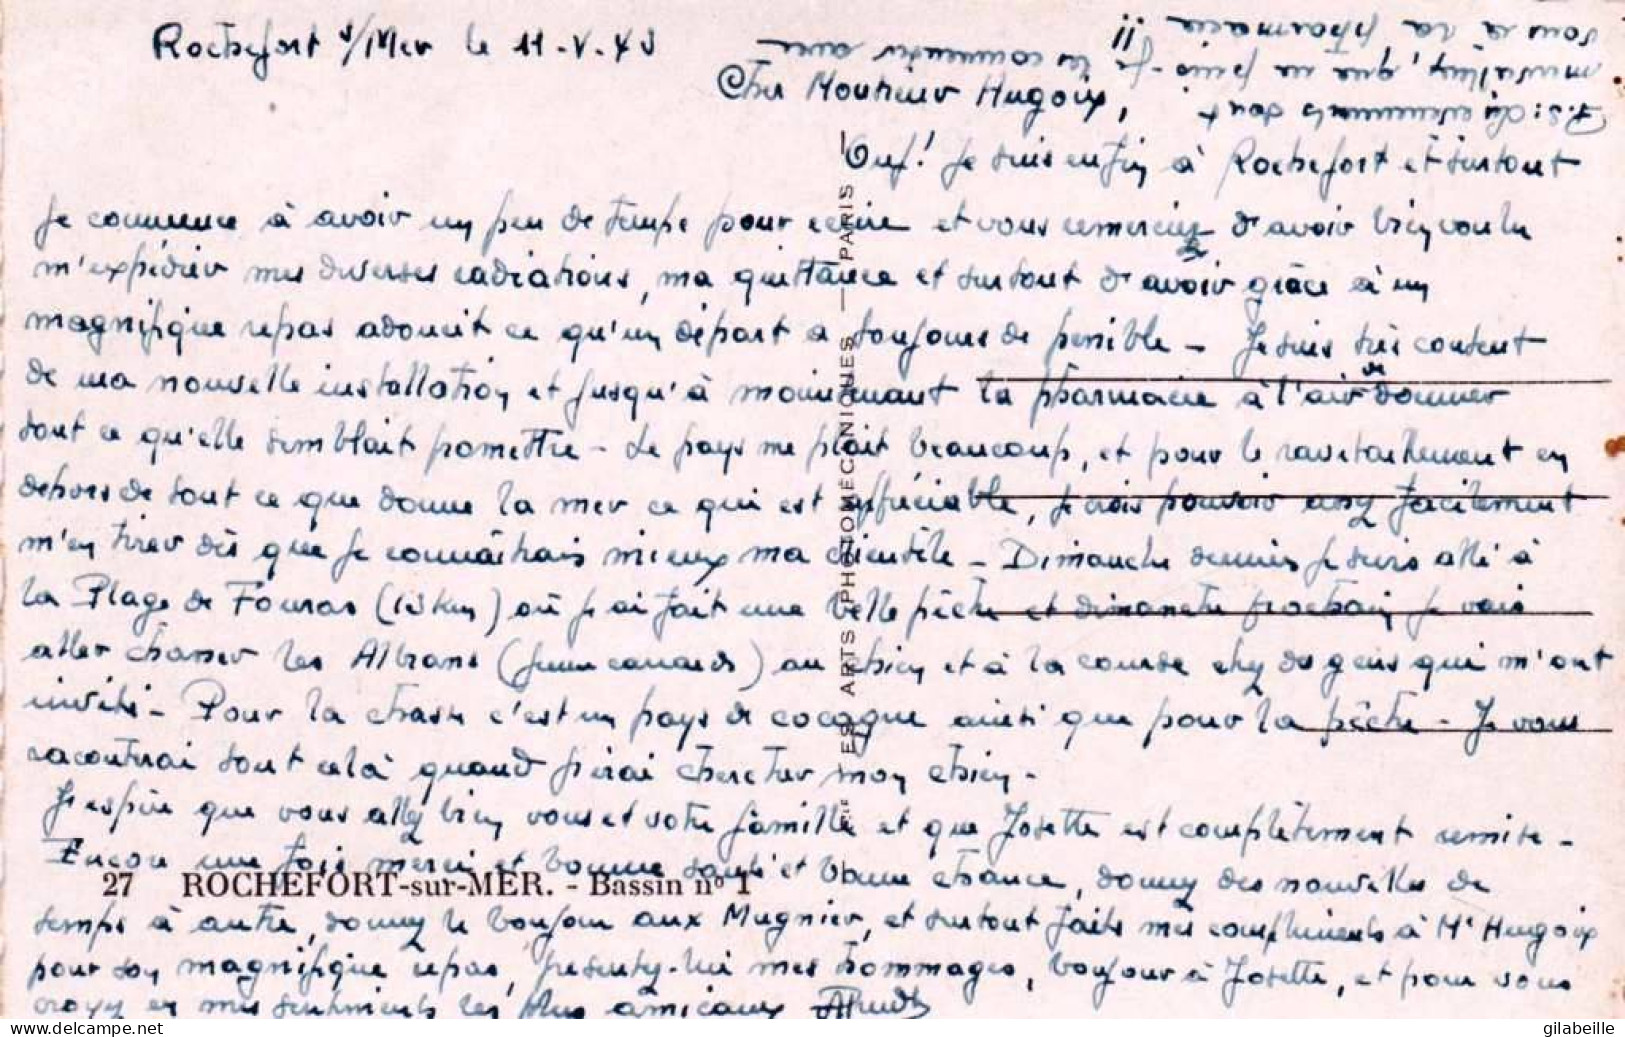 Rochefort s/Mer le 11-V-43
Cher Monsieur Hugoix,
Ouf! Je suis enfin à Rochefort et surtout
je commence à avoir un peu de temps pour ecrire et vous remercier d'avoir bien voulu
m'expédier mes diverses radiations, ma quittance et surtout d'avoir grâce à un
magnifique repas adoucit ce qu'un départ a toujours de penible - Je suis très content
de ma nouvelle installation et jusqu'à maintenant la pharmacie à l'air de donner
tout ce qu'elle semblait promettre - Le pays me plait beaucoup, et pour le ravitaillement en
dehors de tout ce que donne la mer ce qui est appréciable, je crois pouvoir assez facilement
m'en tirer dès que je connaîtrais mieux ma clientèle - Dimanche dernier je suis allé à
la Plage de Fouras (13 km) où j'ai fait une belle pêche et dimanche prochain je vais
aller chasser les Albrans (jeunes canards) au chien et à la course chez des gens qui m'ont
invités - Pour la chasse c'est un pays de cocagne ainsi que pour la pêche - Je vous
raconterai tout celà quand j'irai chercher mon chien -
J'espère que vous allez bien vous et votre famille et que Josette est complètement remise -
Encore une fois merci et bonne santé et bonne chance, donnez des nouvelles de
temps à autre, donnez le bonjour aux Mugnier, et surtout faites mes compliments à Me Hugoix
pour son magnifique repas, présentez-lui mes hommages, bonjour à Josette, et pour vous
croyez en mes sentiments les plus amicaux
P.S: Les evenements sont
merveilleux, que ne puis-je les commenter avec
vous à la pharmacie !!
27 ROCHEFORT-sur-MER. - Bassin no 1
LES ARTS PHOTOMÉCANIQUES — PARIS
www.delcampe.net
gilabeille